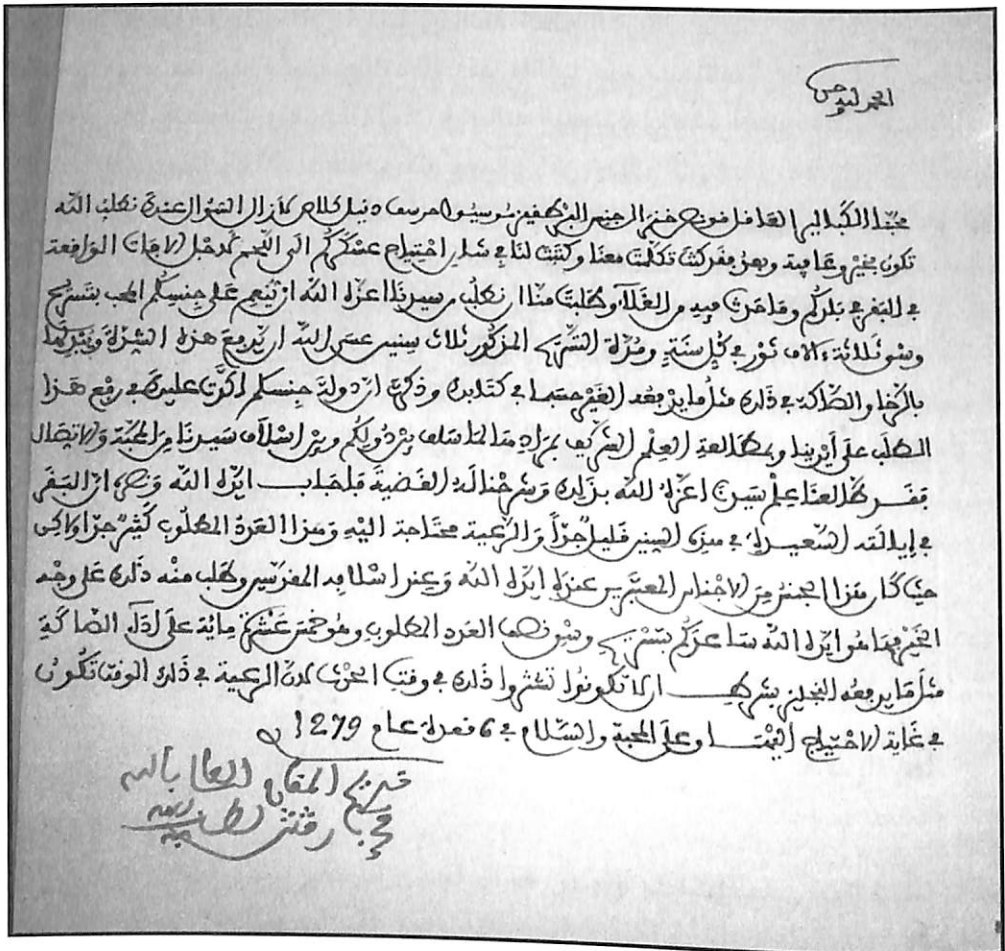 الحمد لله وحده
محبنا الكبالير القائم مقام قونص جنرال جنس البرطقيز موسيو لازال السؤال عنك نطلب الله
تكون بخير وعافية وبعد فقد كنت تكلمت معنا وكتبت لنا في شأن احتياج عسكركم الى اللحم لاجل الآفات الواقعة
في البقر في بلدكم وما حدث فيه من الغلا وطلبت منا ان نطلب من سيدنا اعزه الله ان ينعم على جنسكم المحب بتسريح
وسق ثلاثة آلاف ثور في كل سنة ومدة التسريح المذكور ثلاث سنين عسى الله ان يرفع هذه الشدة ويبدلها
بالرخا والصاكة في ذلك مثل ما يدفعه الغير حسبما في كتابك وذكرت ان دولة جنسكم اكدت عليك في رفع هذا
الطلب على أيدينا وبمطالعة العلم الشريف بمراد هذا لما سلف بين دولكم وبين اسلاف سيدنا من المحبة والاتصال
فقد طالعنا علم سيدنا اعزه الله بذلك وشرحنا له القضية فأجاب ايده الله ونصره ان البقر
في إيالته السعيدة في هذه السنين قليل جدا والرعية محتاجة اليه وهذا العدد المطلوب كثير جدا ولاكن
حيث كان هذا الجنس من الاجناس المعتبرين عنده ايده الله وعند اسلافه المقدسين وطلب منه ذلك على وجه
الخير فها هو ايده الله ساعدكم بتسريح وسق نصف العدد المطلوب وهو خمس عشرة مائة على أداء الصاكة
مثل ما يدفعه النجليز بشرط ان لا تكونوا تشتروا ذلك في وقت الحرث لان الرعية في ذلك الوقت تكون
في غاية الاحتياج وعلى المحبة والسلام في 6 قعدة عام 1279
خديم المقام العالي بالله
محمد لطف الله به